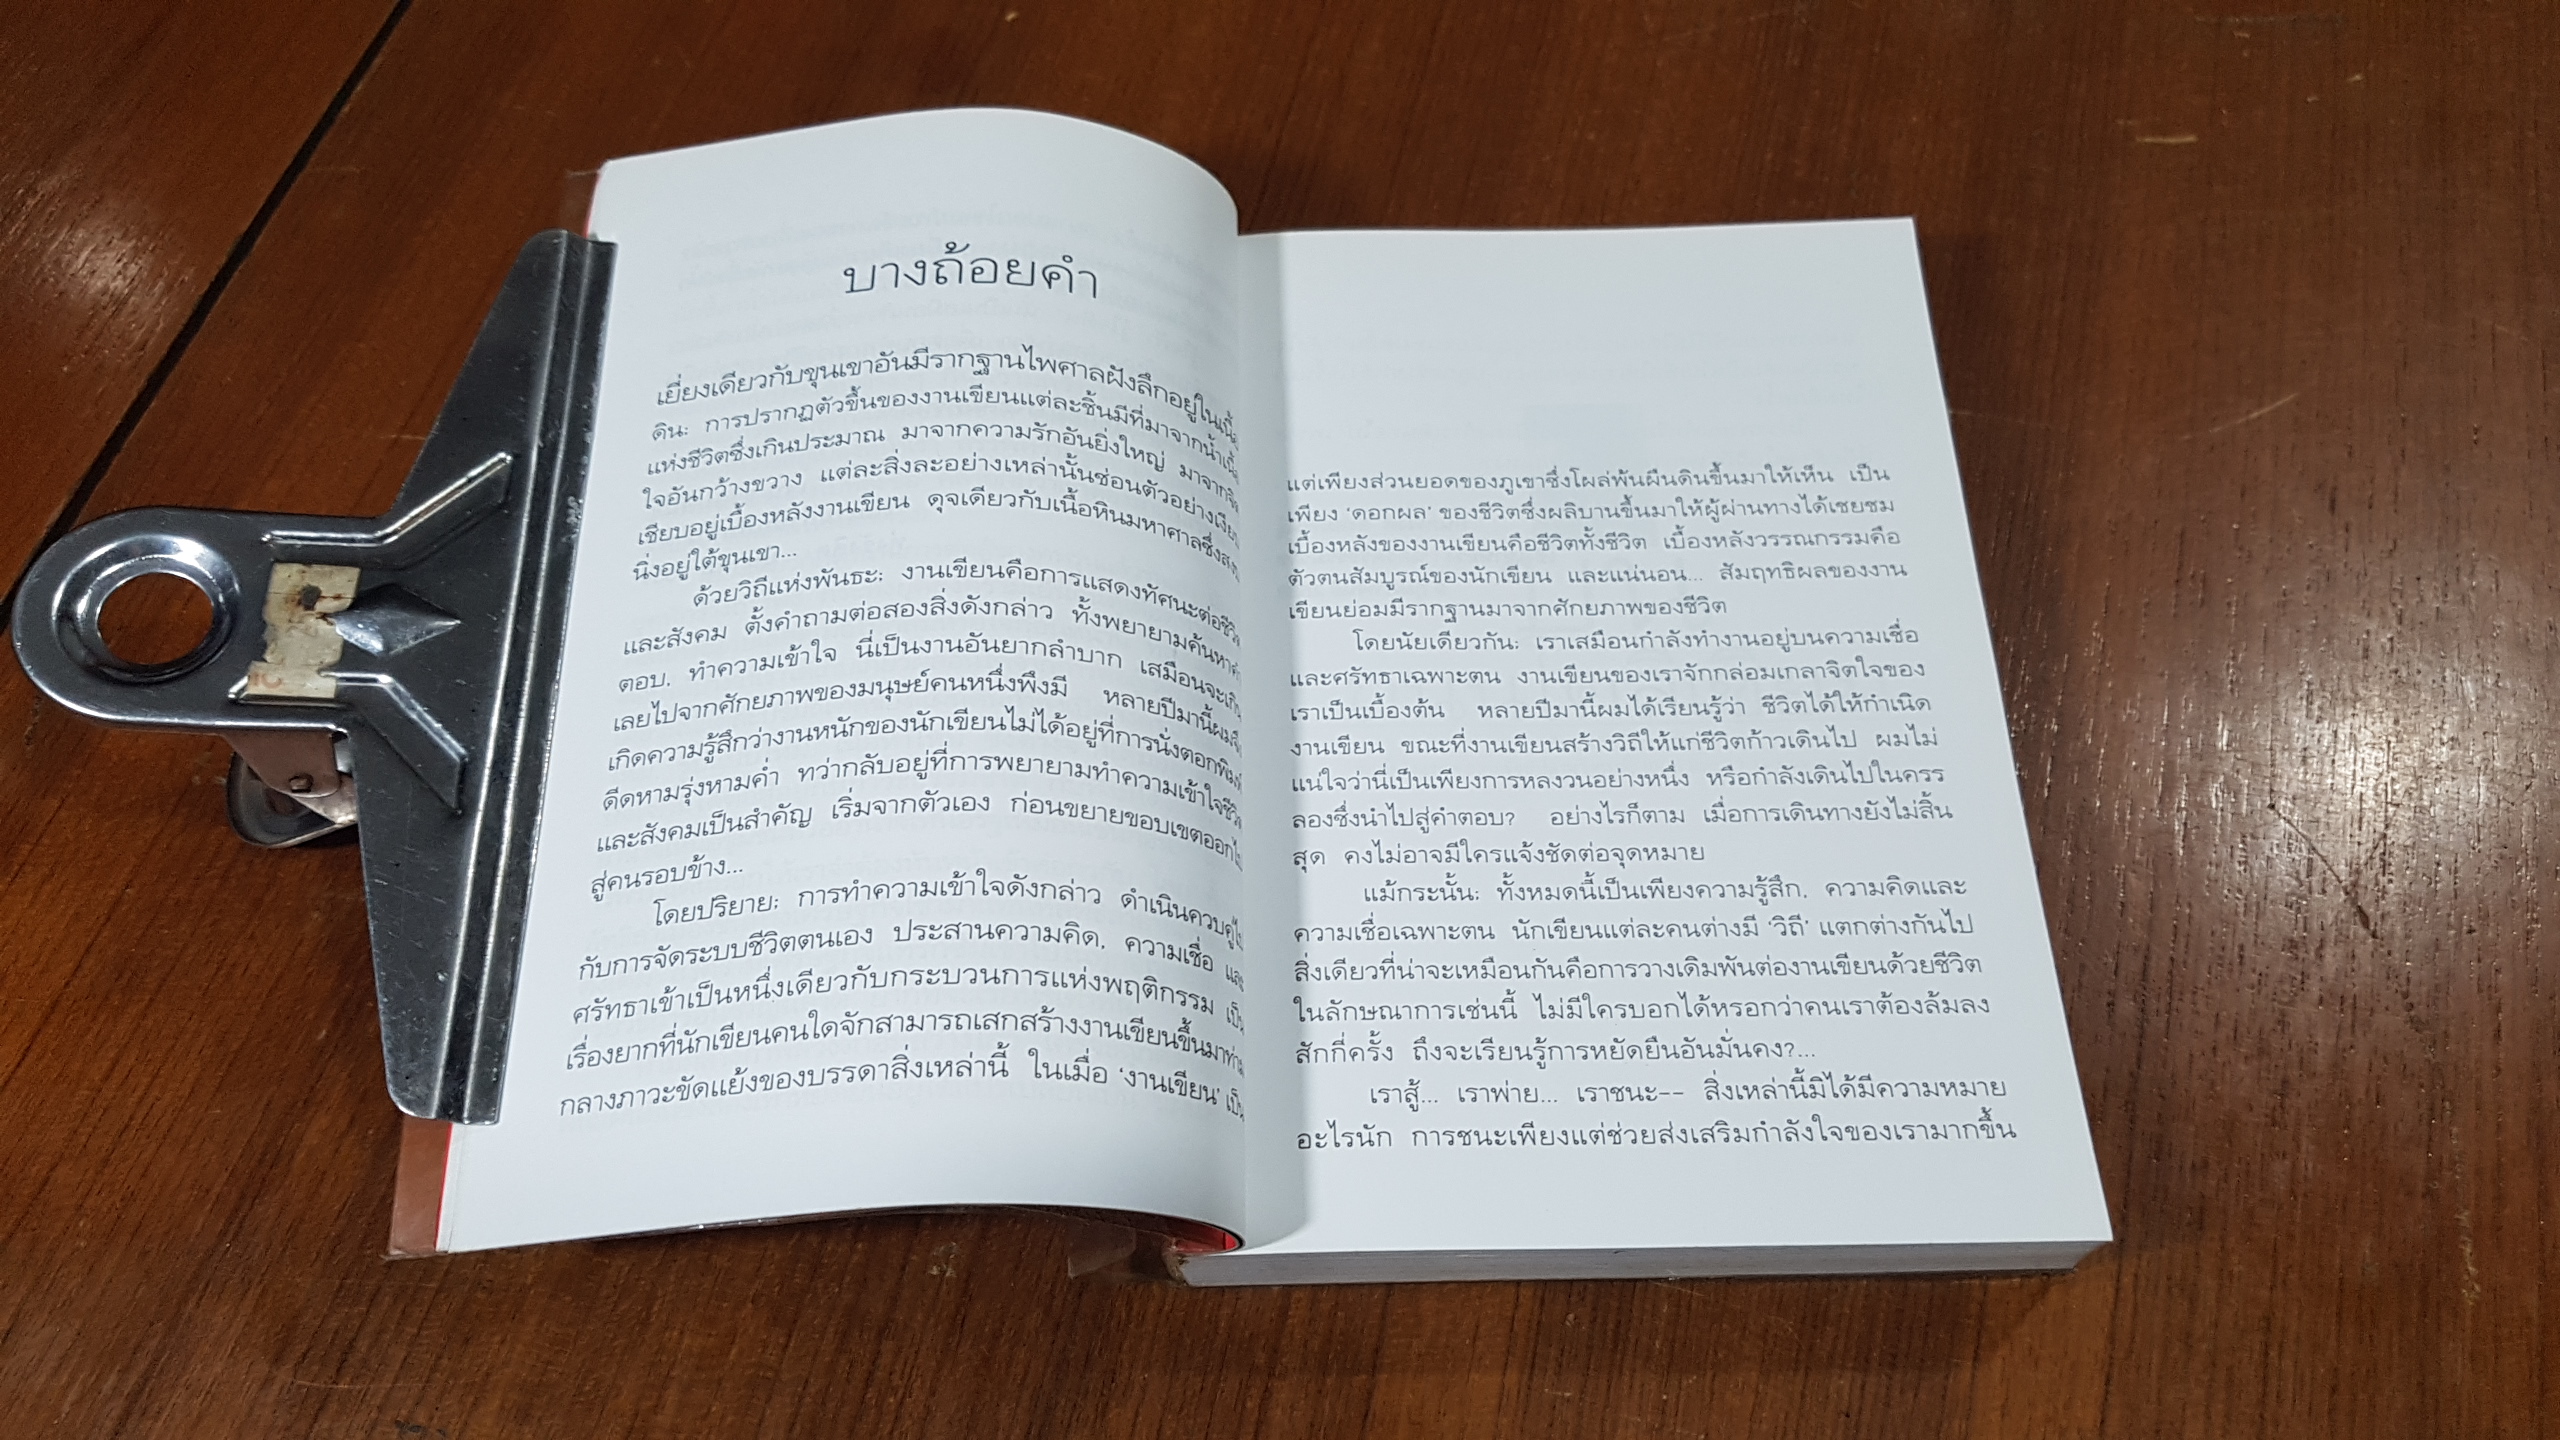 บางถ้อยคำ
เยี่ยงเดียวกับขุนเขาอันมีรากฐานไพศาลฝังลึกอยู่ในเนื้อ
ดิน: การปรากฏตัวขึ้นของงานเขียนแต่ละชิ้นมีที่มาจากน้ำเนื้อ
แห่งชีวิตซึ่งเกินประมาณ มาจากความรักอันยิ่งใหญ่ มาจากจิต
ใจอันกว้างขวาง แต่ละสิ่งละอย่างเหล่านั้นซ่อนตัวอย่างเงียบ
เชียบอยู่เบื้องหลังงานเขียน ดุจเดียวกับเนื้อหินมหาศาลซึ่งสงบ
นิ่งอยู่ใต้ขุนเขา...
ด้วยวิถีแห่งพันธะ: งานเขียนคือการแสดงทัศนะต่อชีวิต
และสังคม ตั้งคำถามต่อสองสิ่งดังกล่าว ทั้งพยายามค้นหาคำ
ตอบ, ทำความเข้าใจ นี่เป็นงานอันยากลำบาก เสมือนจะเกิน
เลยไปจากศักยภาพของมนุษย์คนหนึ่งพึงมี หลายปีมานี้ผมจึง
เกิดความรู้สึกว่างานหนักของนักเขียนไม่ได้อยู่ที่การนั่งตอกพิมพ์
ดีดหามรุ่งหามค่ำ ทว่ากลับอยู่ที่การพยายามทำความเข้าใจชีวิต
และสังคมเป็นสำคัญ เริ่มจากตัวเอง ก่อนขยายขอบเขตออกไป
สู่คนรอบข้าง...
โดยปริยาย: การทำความเข้าใจดังกล่าว ดำเนินควบคู่ไป
กับการจัดระบบชีวิตตนเอง ประสานความคิด, ความเชื่อ และ
ศรัทธาเข้าเป็นหนึ่งเดียวกับกระบวนการแห่งพฤติกรรม เป็น
เรื่องยากที่นักเขียนคนใดจักสามารถเสกสร้างงานเขียนขึ้นมาท่าม
กลางภาวะขัดแย้งของบรรดาสิ่งเหล่านี้ ในเมื่อ 'งานเขียน' เป็น
แต่เพียงส่วนยอดของภูเขาซึ่งโผล่พ้นผืนดินขึ้นมาให้เห็น เป็น
เพียง 'ดอกผล' ของชีวิตซึ่งผลิบานขึ้นมาให้ผู้ผ่านทางได้เชยชม
เบื้องหลังของงานเขียนคือชีวิตทั้งชีวิต เบื้องหลังวรรณกรรมคือ
ตัวตนสัมบูรณ์ของนักเขียน และแน่นอน... สัมฤทธิผลของงาน
เขียนย่อมมีรากฐานมาจากศักยภาพของชีวิต
โดยนัยเดียวกัน: เราเสมือนกำลังทำงานอยู่บนความเชื่อ
และศรัทธาเฉพาะตน งานเขียนของเราจักกล่อมเกลาจิตใจของ
เราเป็นเบื้องต้น หลายปีมานี้ผมได้เรียนรู้ว่า ชีวิตได้ให้กำเนิด
งานเขียน ขณะที่งานเขียนสร้างวิถีให้แก่ชีวิตก้าวเดินไป ผมไม่
แน่ใจว่านี่เป็นเพียงการหลงวนอย่างหนึ่ง หรือกำลังเดินไปในครร
ลองซึ่งนำไปสู่คำตอบ? อย่างไรก็ตาม เมื่อการเดินทางยังไม่สิ้น
สุด คงไม่อาจมีใครแจ้งชัดต่อจุดหมาย
แม้กระนั้น: ทั้งหมดนี้เป็นเพียงความรู้สึก, ความคิดและ
ความเชื่อเฉพาะตน นักเขียนแต่ละคนต่างมี 'วิถี' แตกต่างกันไป
สิ่งเดียวที่น่าจะเหมือนกันคือการวางเดิมพันต่องานเขียนด้วยชีวิต
ในลักษณาการเช่นนี้ ไม่มีใครบอกได้หรอกว่าคนเราต้องล้มลง
สักกี่ครั้ง ถึงจะเรียนรู้การหยัดยืนอันมั่นคง?...
เราสู้... เราพ่าย... เราชนะ-- สิ่งเหล่านี้มิได้มีความหมาย
อะไรนัก การชนะเพียงแต่ช่วยส่งเสริมกำลังใจของเรามากขึ้น